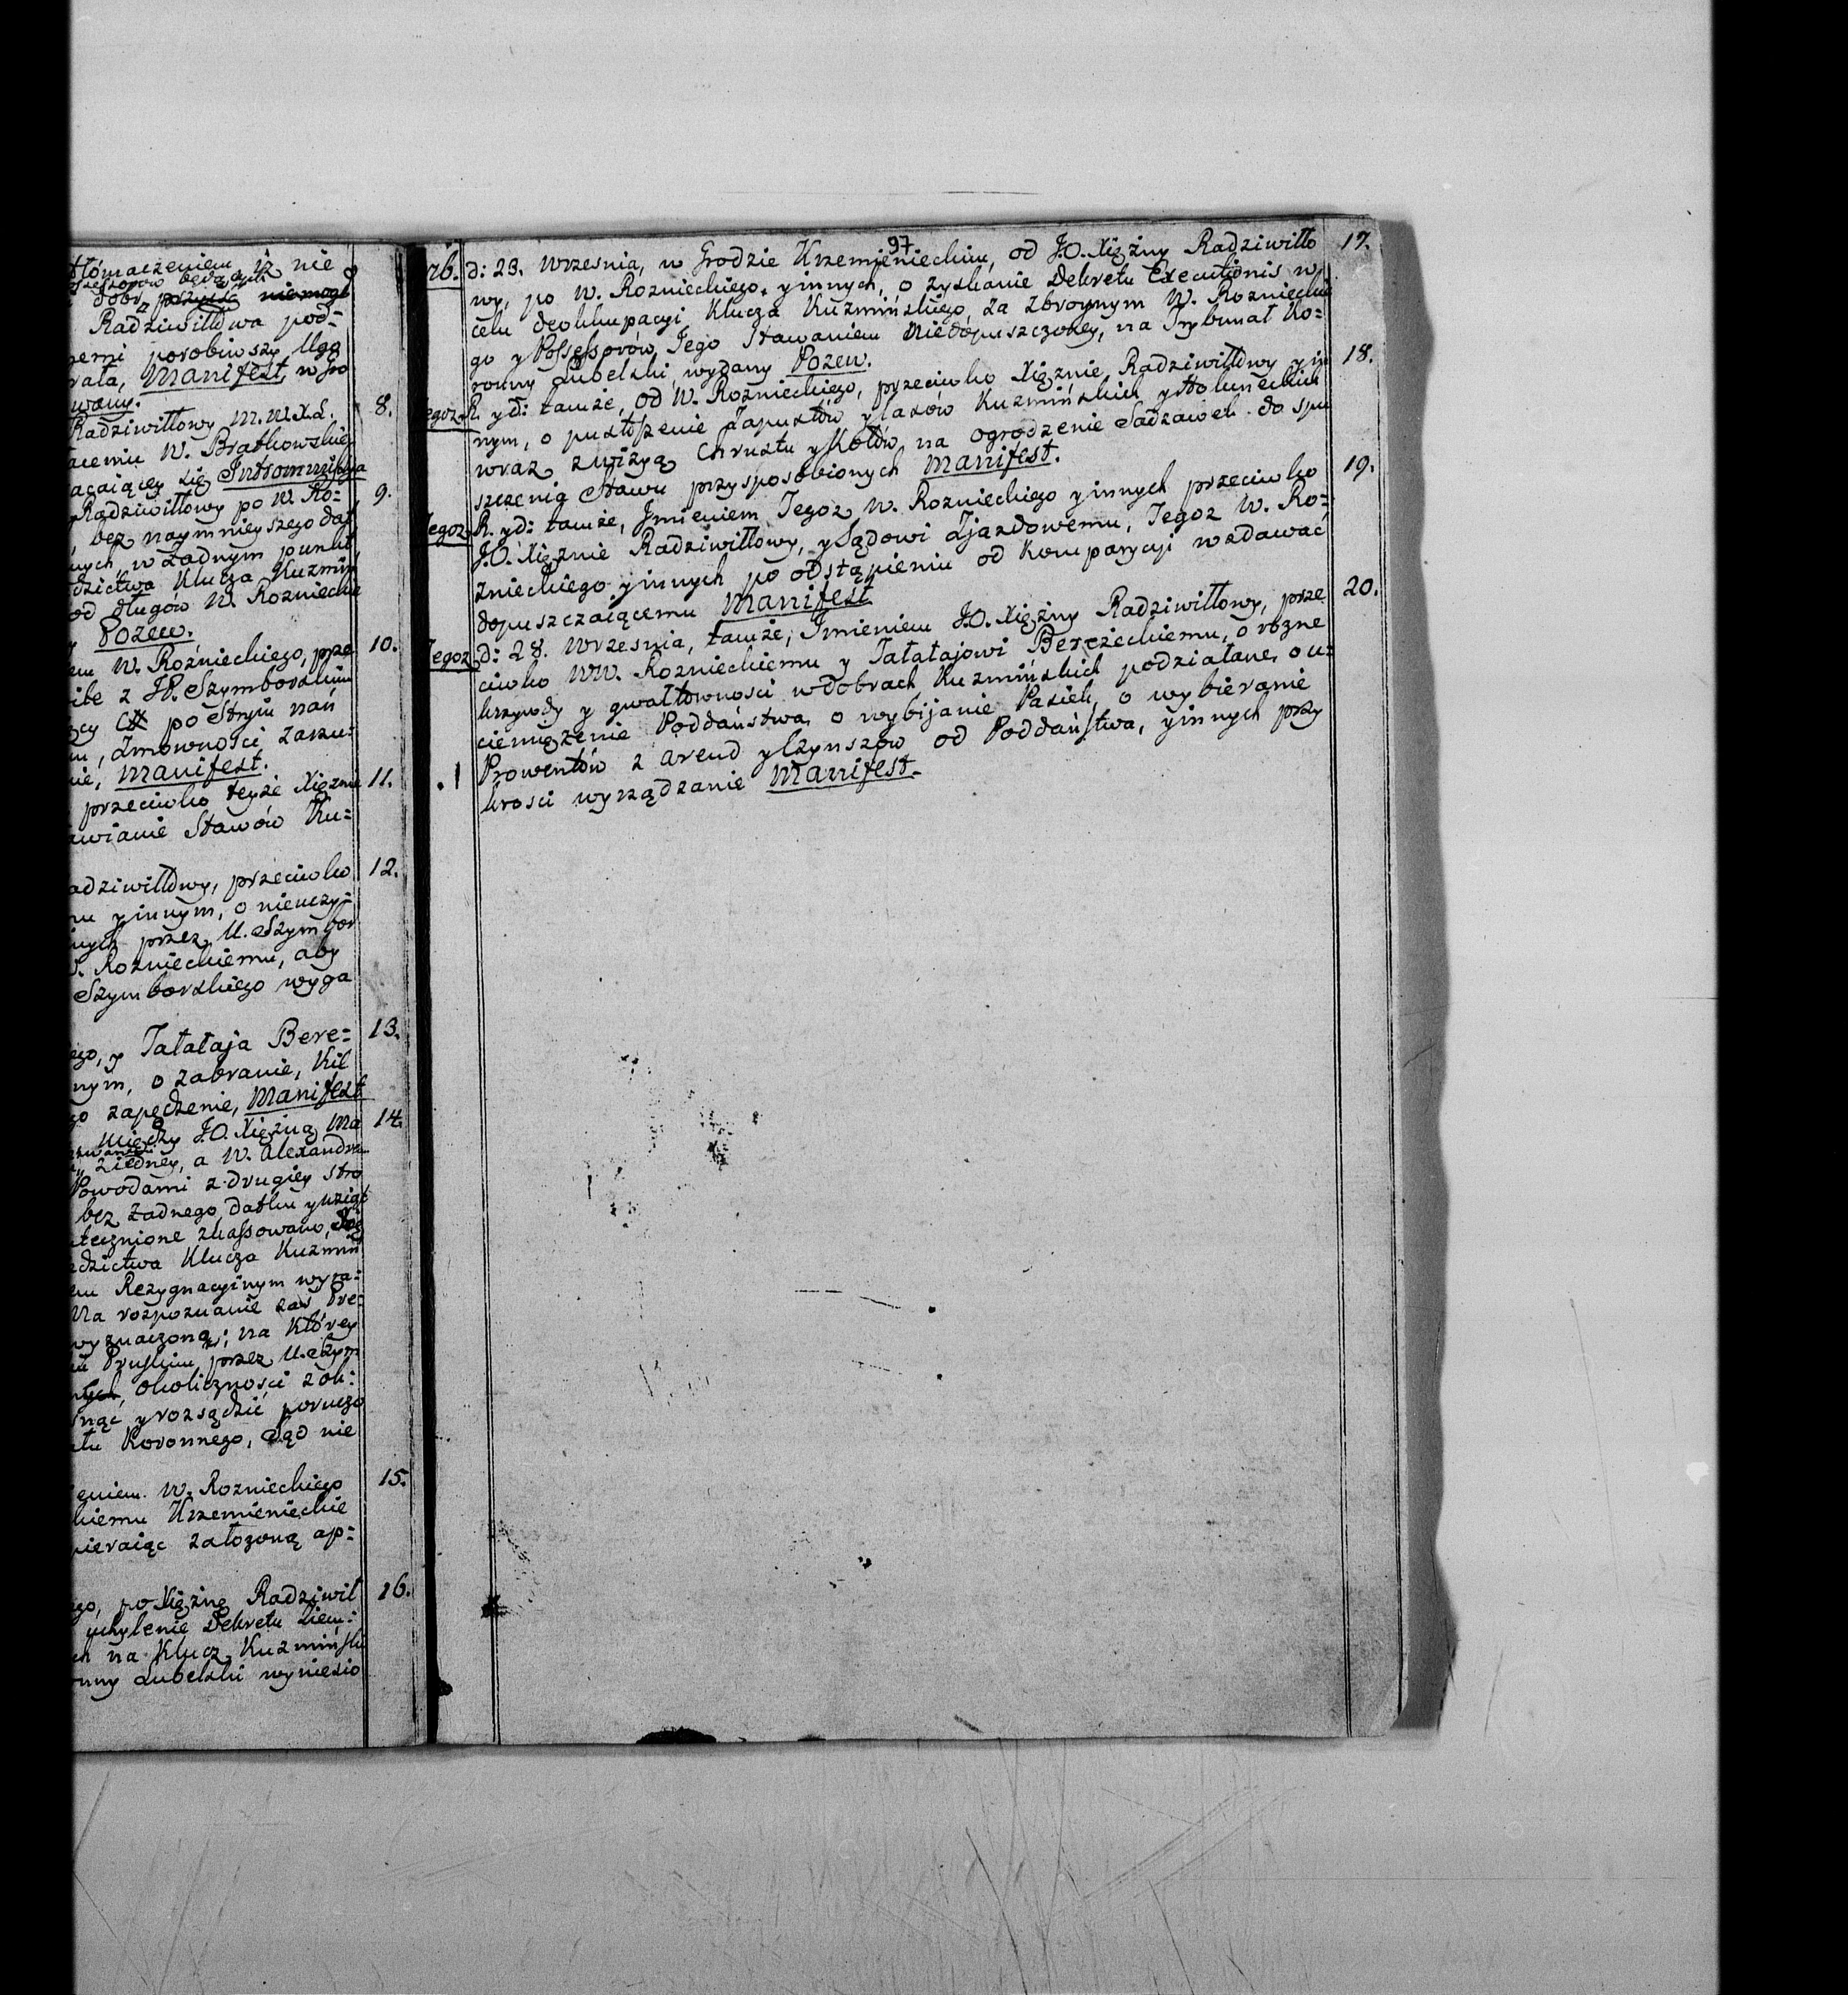 tłómaczeniem iż nie
Possessorów będących
dobr przyść niemogł
Radziwiłłowa pod=
nemi porobiwszy Ugo
rała, Manifest, w Gro
wany.
Radziwiłłowy M.W.X.L. 8.
aceniu W. Bratkowskie
acaiącey się Intromissya
Radziwiłłowy po W. Ro= 9.
, bez naymnieyszego dat
nych, w żadnym punkt
dzictwa Klucza Kuzmiń
od długów W. Rozniecki
Pozew.
em W. Roźnieckiego, prze 10.
ibe z JP. Szymborskim
ący po Stryiu nań
m, zmowności zarzu=
nie, Manifest.
przeciwko teyże Xiężnie 11.
awianie Stawów Ku=
adziwiłłowy, przeciwko 12.
mu y innym, o nieuczy=
nych przez U. Szymbor
W. Roznieckiemu, aby
Szymborskiego wyga
ego, y Tatałaja Bere= 13.
nym, o zabranie, Kil
go zapędzenie, Manifest
między J.O. Xiężną Ma 14.
ziedney, a W. Alexandrem
Powodami z drugiey stro
bez żadnego datku y wzięt
utecznione skassowano,
edzictwa Klucza Kuzmiń
em Rezygnacyinym wyra=
Na rozpoznanie zaś Pre=
wyznaczoną; na Którey
Pruskim przez U. Szym
okoliczności z ok=
nąć, y rozsądzić porucza
ału Koronnego, Sąd nie
eniem W. Roznieckiego 15.
kiemu Krzemienieckie
pieraiąc założoną ap=
ego, po Xiężnę Radziwił 16.
uchylenie Dekretu Ziem=
ch na Klucz Kuzmińsk
onny Lubelski wyniesio
97
rb. d: 23. Wrzesnia, w Grodzie Krzemienieckim, od J.O. Xiężny Radziwiłło 17.
wy, po W. Roznieckiego, y innych, o zyskanie Dekretu Executionis w
celu deokkupacyi Klucza Kuzmińskiego, za zbroynym W. Roznieckie
go y Possessorów Jego Stawaniem niedopuszczoney, na Trybunał Ko=
ronny Lubelski wydany Pozew.
Tegoż R. y d: tamże, od W. Roznieckiego, przeciwko Xiężnie Radziwiłłowy y in 18.
nym, o pustoszenie Zapustów y lasów Kuzmińskich y Hołuneckich
wraz z wizyą Chrustu y Kołów na ogrodzenie Sadzawek do spu
szczenia Stawu przysposobionych Manifest.
Tegoż R. y d: tamże, Jmieniem Tegoż W. Roznieckiego y innych przeciwko 19.
J.O. Xiężnie Radziwiłłowy, y Sądowi Zjazdowemu, Tegoż W. Ro=
znieckiego y innych po odstąpieniu od Komparycyi wzdawać
dopuszczaiącemu Manifest
Tegoż d: 28. Wrzesnia, tamże, Jmieniem J.O. Xiężny Radziwiłłowy, prze 20.
ciwko WW. Roznieckiemu y Tatałajowi Bereżeckiemu, o rozne
krzywdy y gwałtowności w dobrach Kuzmińskich podziałane, o u=
ciemiężenie Poddaństwa, o wybijanie Pasiek, o wybieranie
Prowentów z arend y Czynszow od Poddaństwa, y innych przy
krosci wyrządzanie Manifest.